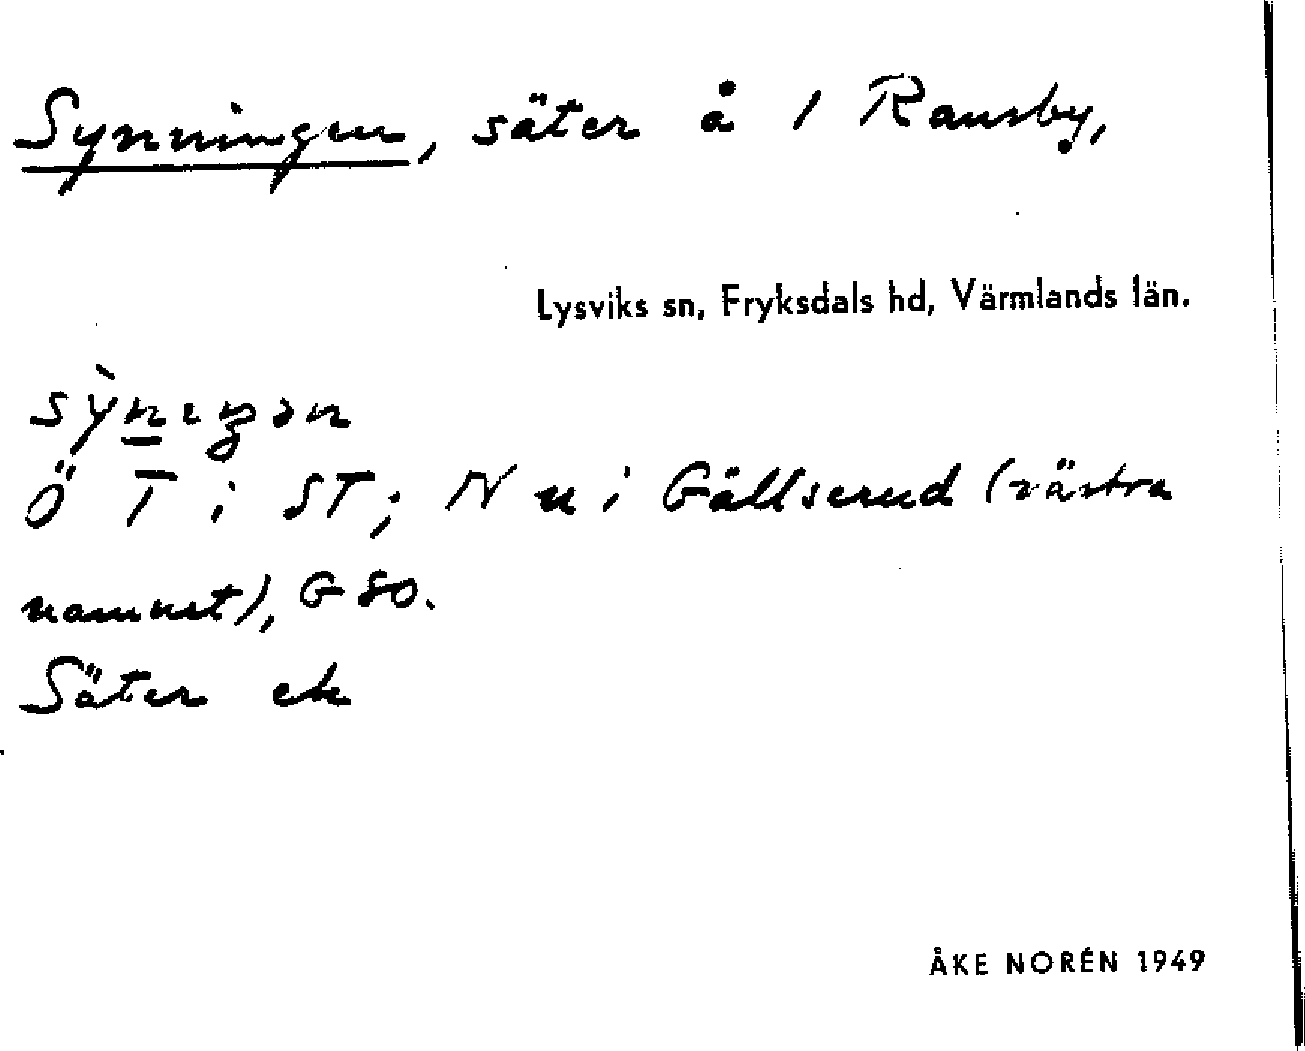 Synningen, säter å 1 Ransby,
Lysviks sn, Fryksdals hd, Värmlands län.
sỳn̲ıŋən
Ö T i ST; N u i Gällserud (västra
namnet), G 80.
Säter ek
ÅKE NORÉN 1949